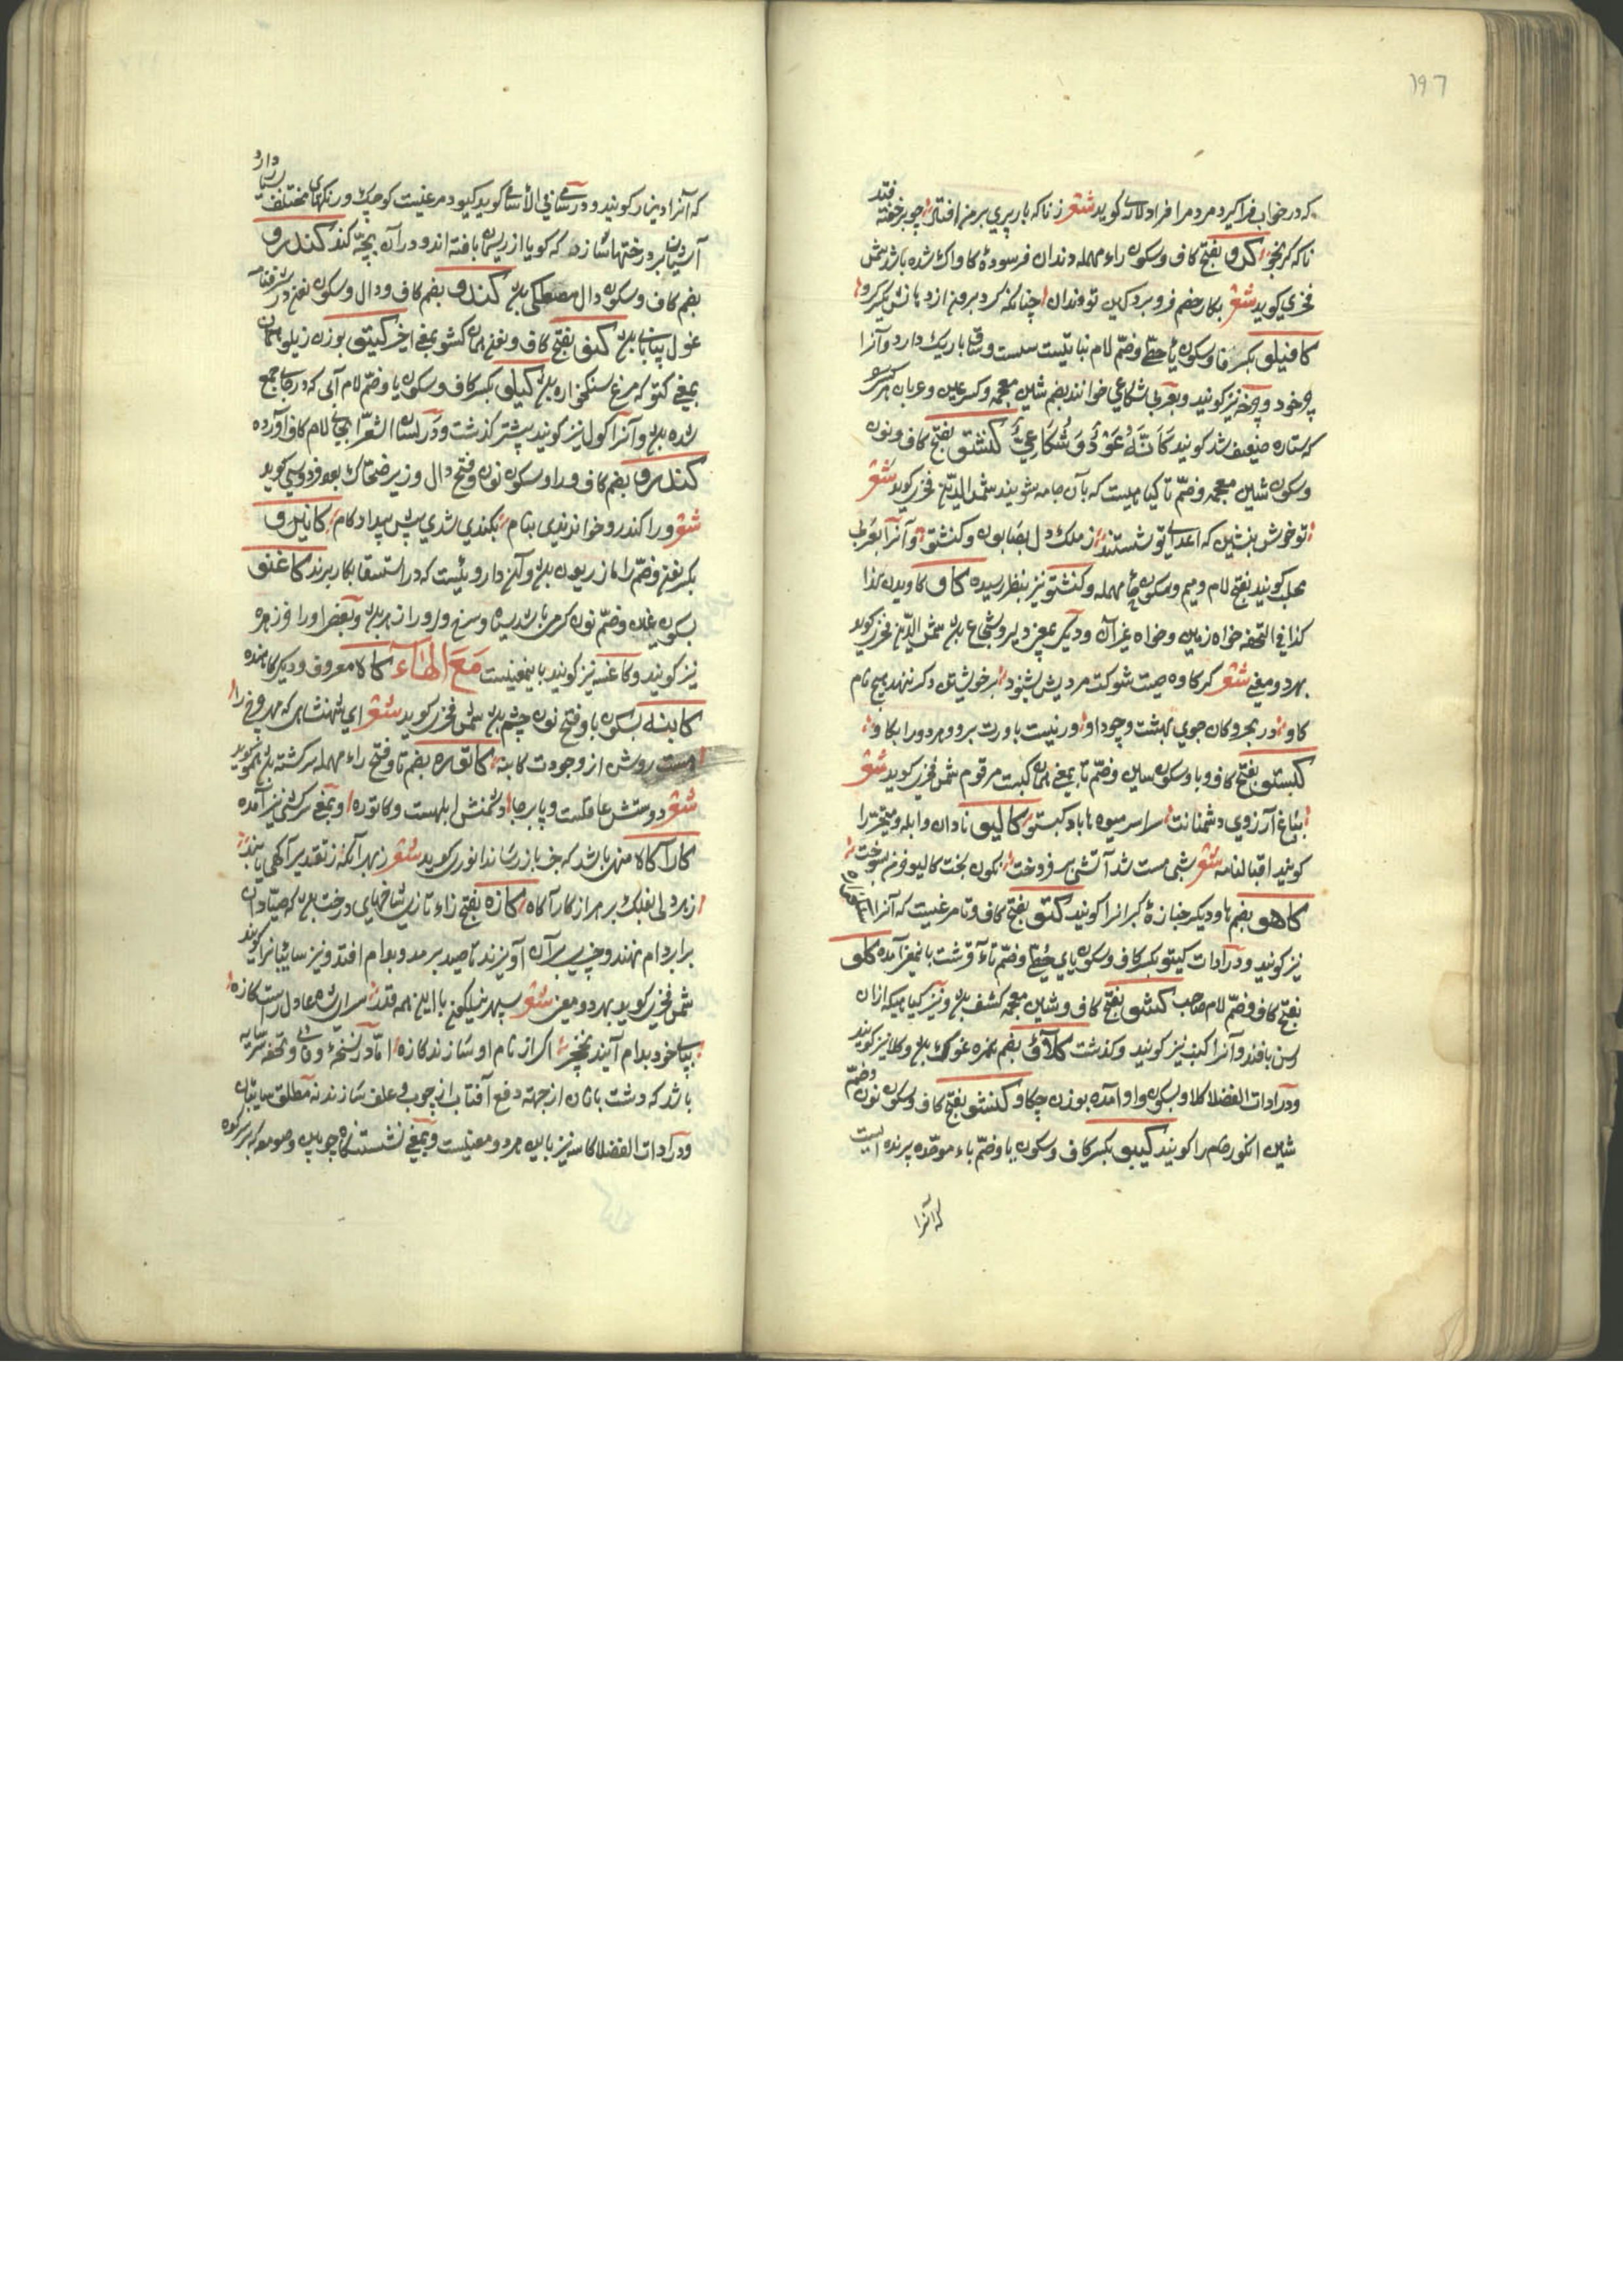 ۱۹٦
که در خواب فرا گیرد مردم را فرادلاری گوید شعر ز ناگه بار پیری بر من افتاد چو بر خفته فتد
ناگه کرنجو کرو بفتح کاف وسکون راء مهمله دندان فرسودهٔ کاواک شده باشد شمس
فخری گوید شعر بکار خصم فرو برد کین تو دندان چنانکه کرد برون از دهانش یکسر کرو
کافیلو بکسر فا وسکون یاء حطی وضم لام نباتیست سست وساق باریک دارد وآنرا
چرخود و چرخه نیز گویند وبعربی شکاعی خوانند بضم شین معجمه وکسر عین وعربان هر کسی
که ستاره ضعیف شد گویند کَاَنَّهُ عَوْدُ شُکَاعِیٍّ کنشتو بفتح کاف ونون
وسکون شین معجمه وضم تا گیاهیست که بآن جامه شویند شمس الدین فخری گوید شعر
تو خوش بنشین که اعدای تو شستند ز ملک دل بصابون وکنشتو وآنرا بعربی
محلب گویند بفتح لام ومیم وسکون حاء مهمله وکنشتو نیز بنظر رسیده کاو کاویدن بذا
کذا فی التحفه خواه زمین وخواه غیر آن ودیگر بمعنی دلیر وشجاع بود شمس الدین فخری گوید
بهر دو معنی شعر گر کاوه صیت شوکت مردیش بشنود بر خویشتن دگر ننهد هیچ نام
کاو در بحر وکان جوی بهشت وجود او ور نیست باورت برو وهر دو را بکاو
کبستو بفتح کاف وبا وسکون سین وضم تا بمعنی همان کبست مرقوم شمس فخری گوید شعر
بباغ آرزوی دشمنانت سراسر میوه ها باد کبستو کالیو نادان وابله ومتحیر را
گویند اقبالنامه شعر شبی مست شد آتشی بر فروخت نگون بخت کالیو خرمن بسوخت
کاهو بضم ها ودیگر جنازهٔ گبرانرا گویند کتو بفتح کاف وتا مرغیست که آنرا
نیز گویند ودر ادات کیتو بکسر کاف وسکون یای حطی وضم تاء قرشت باینمعنی آمده کلو
بفتح کاف وضم لام صاحب کشو بفتح کاف وشین معجمه کشف بود ونیز گیاهیکه از آن
رسن بافند وآنرا کنب نیز گویند وگذشت کلاؤ بضم همزه غوک بود وکلا نیز گویند
ودر ادات الفضلا کلاو بسکون واو آمده بوزن چکاو کنشو بفتح کاف وسکون نون وضم
شین انگور خام را گویند کیبو بکسر کاف وسکون یا وضم باء موحده پرنده ایست
که آنرا
که آنرا دینار گویند ودر سامی فی الاسامی گوید کیود مرغیست کوچک ورنگهای مختلف دارد
آشیان بر درختها سازد که گویا از ریسمان بافته اند ودر آن بچه کند کندرو
بضم کاف وسکون دال مصطکی بود کندو بضم کاف ودال وسکون نون در شرفنامه
غول بیابانی بود کنو بفتح کاف ونون همان کشو بمعنی اخیر کیتو بوزن زیلو همان
بمعنی کتو که مرغ سنگخواره بود کیلو بکسر کاف وسکون یا وضم لام آبی که در جایی جمع
شده بود وآنرا کول نیز گویند پیشتر گذشت ودر لسان الشعرا بجای لام کاف آورده
کندرو بضم کاف ورا وسکون نون وفتح دال وزیر ضحاک بود فردوسی گوید
شعر ورا کندرو خواندندی بنام بکندی شدی پیش بیداد کام کانیرو
بکسر نون وضم را مازریون بود وآن داروئیست که در استسقا بکار برند کاغنو
بسکون غین وضم نون کرمی باشد سیاه وسرخ ودر او زهر بود وبعضی او را فرزهره
نیز گویند وکاغنه نیز گویند باینمعنیست مَعَ الهَاءِ کالا معروف ودیگر کاهنده
کابنه بسکون با وفتح نون چشم بود شمس فخری گوید شعر ای شهنشاهی که مهر وچرخ را
هست روش از وجودت کابنه کاتوره بضم تا وفتح راء مهمله سرگشته بود هم او گوید
شعر دوستش عاقلست وپا برجا دشمنش ابلهست وکاتوره وبمعنی سرگشتگی نیز آمده
کارآگاه منهی باشد که خبر باز رساند انوری گوید شعر زهر آنکه ز تقدیر آگهی یابند
زهر ولی افلاک بر هر از کارآگاه کازه بفتح زاء تازی شاخهای درخت بود که صیادان
برابر دام نهند وچیزی بر آن آویزند تا صید برمد وبدام افتد ونیز سایبانرا گویند
شمس فخری گوید بهر دو معنی شعر سپهر نیلگون با این همه قدر سرای شاه عادل راست کازه
بپای خود بدام آیند نخچیر اگر از نام او سازند کازه اما در نسخهٔ وفائی وتحفه سایه
باشد که دشت بانان از جهة دفع آفتاب از چوب وعلف سازند نه مطلق سایبان
ودر ادات الفضلا کاسه نیز باین هر دو معنیست وبمعنی نشستنگاه چوبین وصومعه که بر سر کوه